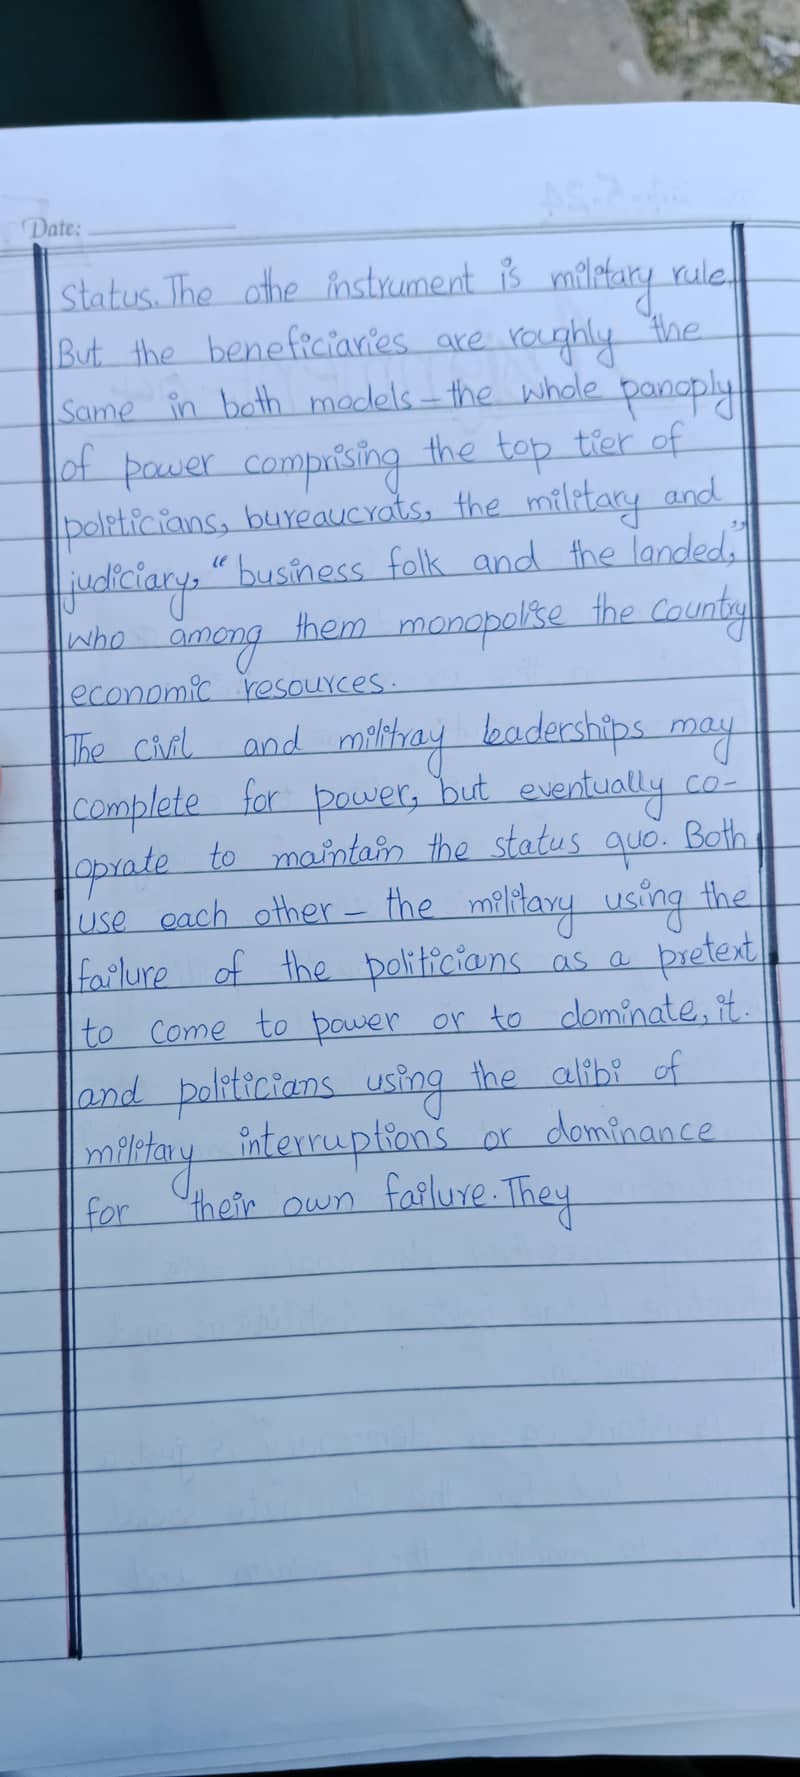 Date:
Status. The othe instrument is military rule.
But the beneficiaries are roughly the
same in both models - the whole panoply
of power comprising the top tier of
politicians, bureaucrats, the military and
judiciary, "business folk and the landed,"
who among them monopolise the country
economic resources.
The civil and militray leaderships may
complete for power, but eventually co-
oprate to maintain the status quo. Both
use each other - the military using the
failure of the politicians as a pretext
to come to power or to dominate, it.
and politicians using the alibi of
military interruptions or dominance
for their own failure. They